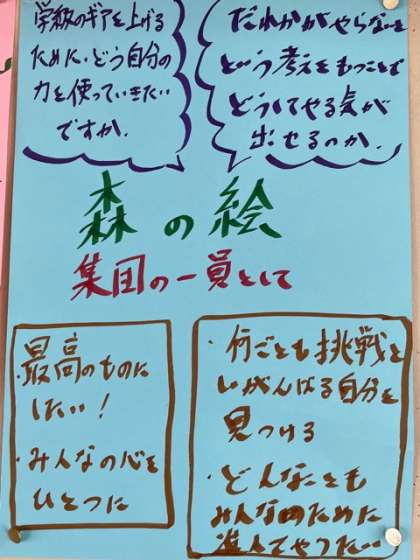 学級のギアを上げる
ために、どう自分の
力を使っていきたい
ですか。
だれかがやらないと
という考えをもつことで
どうしてやる気が
出せるのか。
森の絵
集団の一員として
・最高のものに
したい!
・みんなの心を
ひとつに
・何ごとも挑戦と
いがんばる自分を
見つける
・どんなことも
みんなのために
進んでやりたい